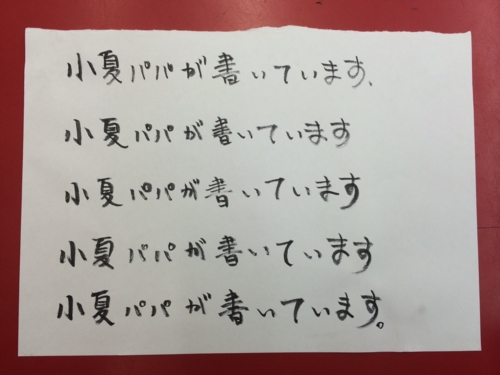 小夏パパが書いています、
小夏パパが書いています
小夏パパが書いています
小夏パパが書いています
小夏パパが書いています。